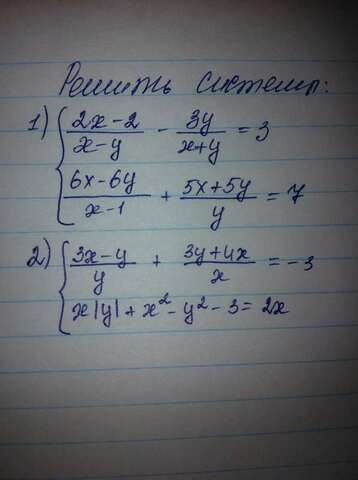 Решить системы:
1) { (2x-2)/(x-y) - 3y/(x+y) = 3
(6x-6y)/(x-1) + (5x+5y)/y = 7
2) { (3x-y)/y + (3y+4x)/x = -3
x|y| + x² - y² - 3 = 2x